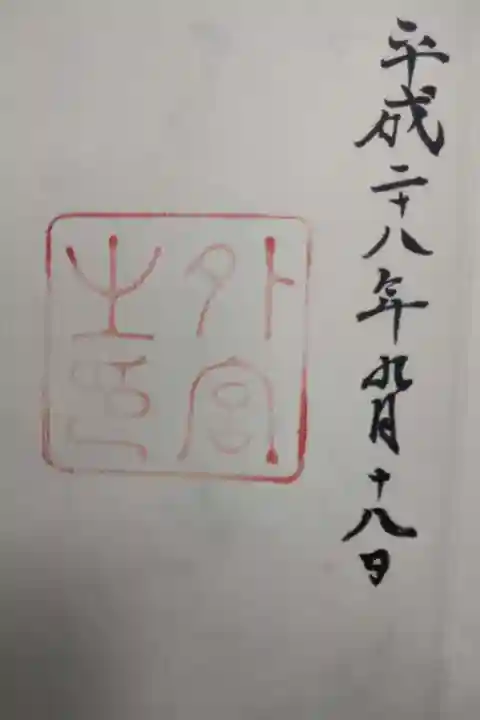 平成二十八年九月十八日
外宮
之印